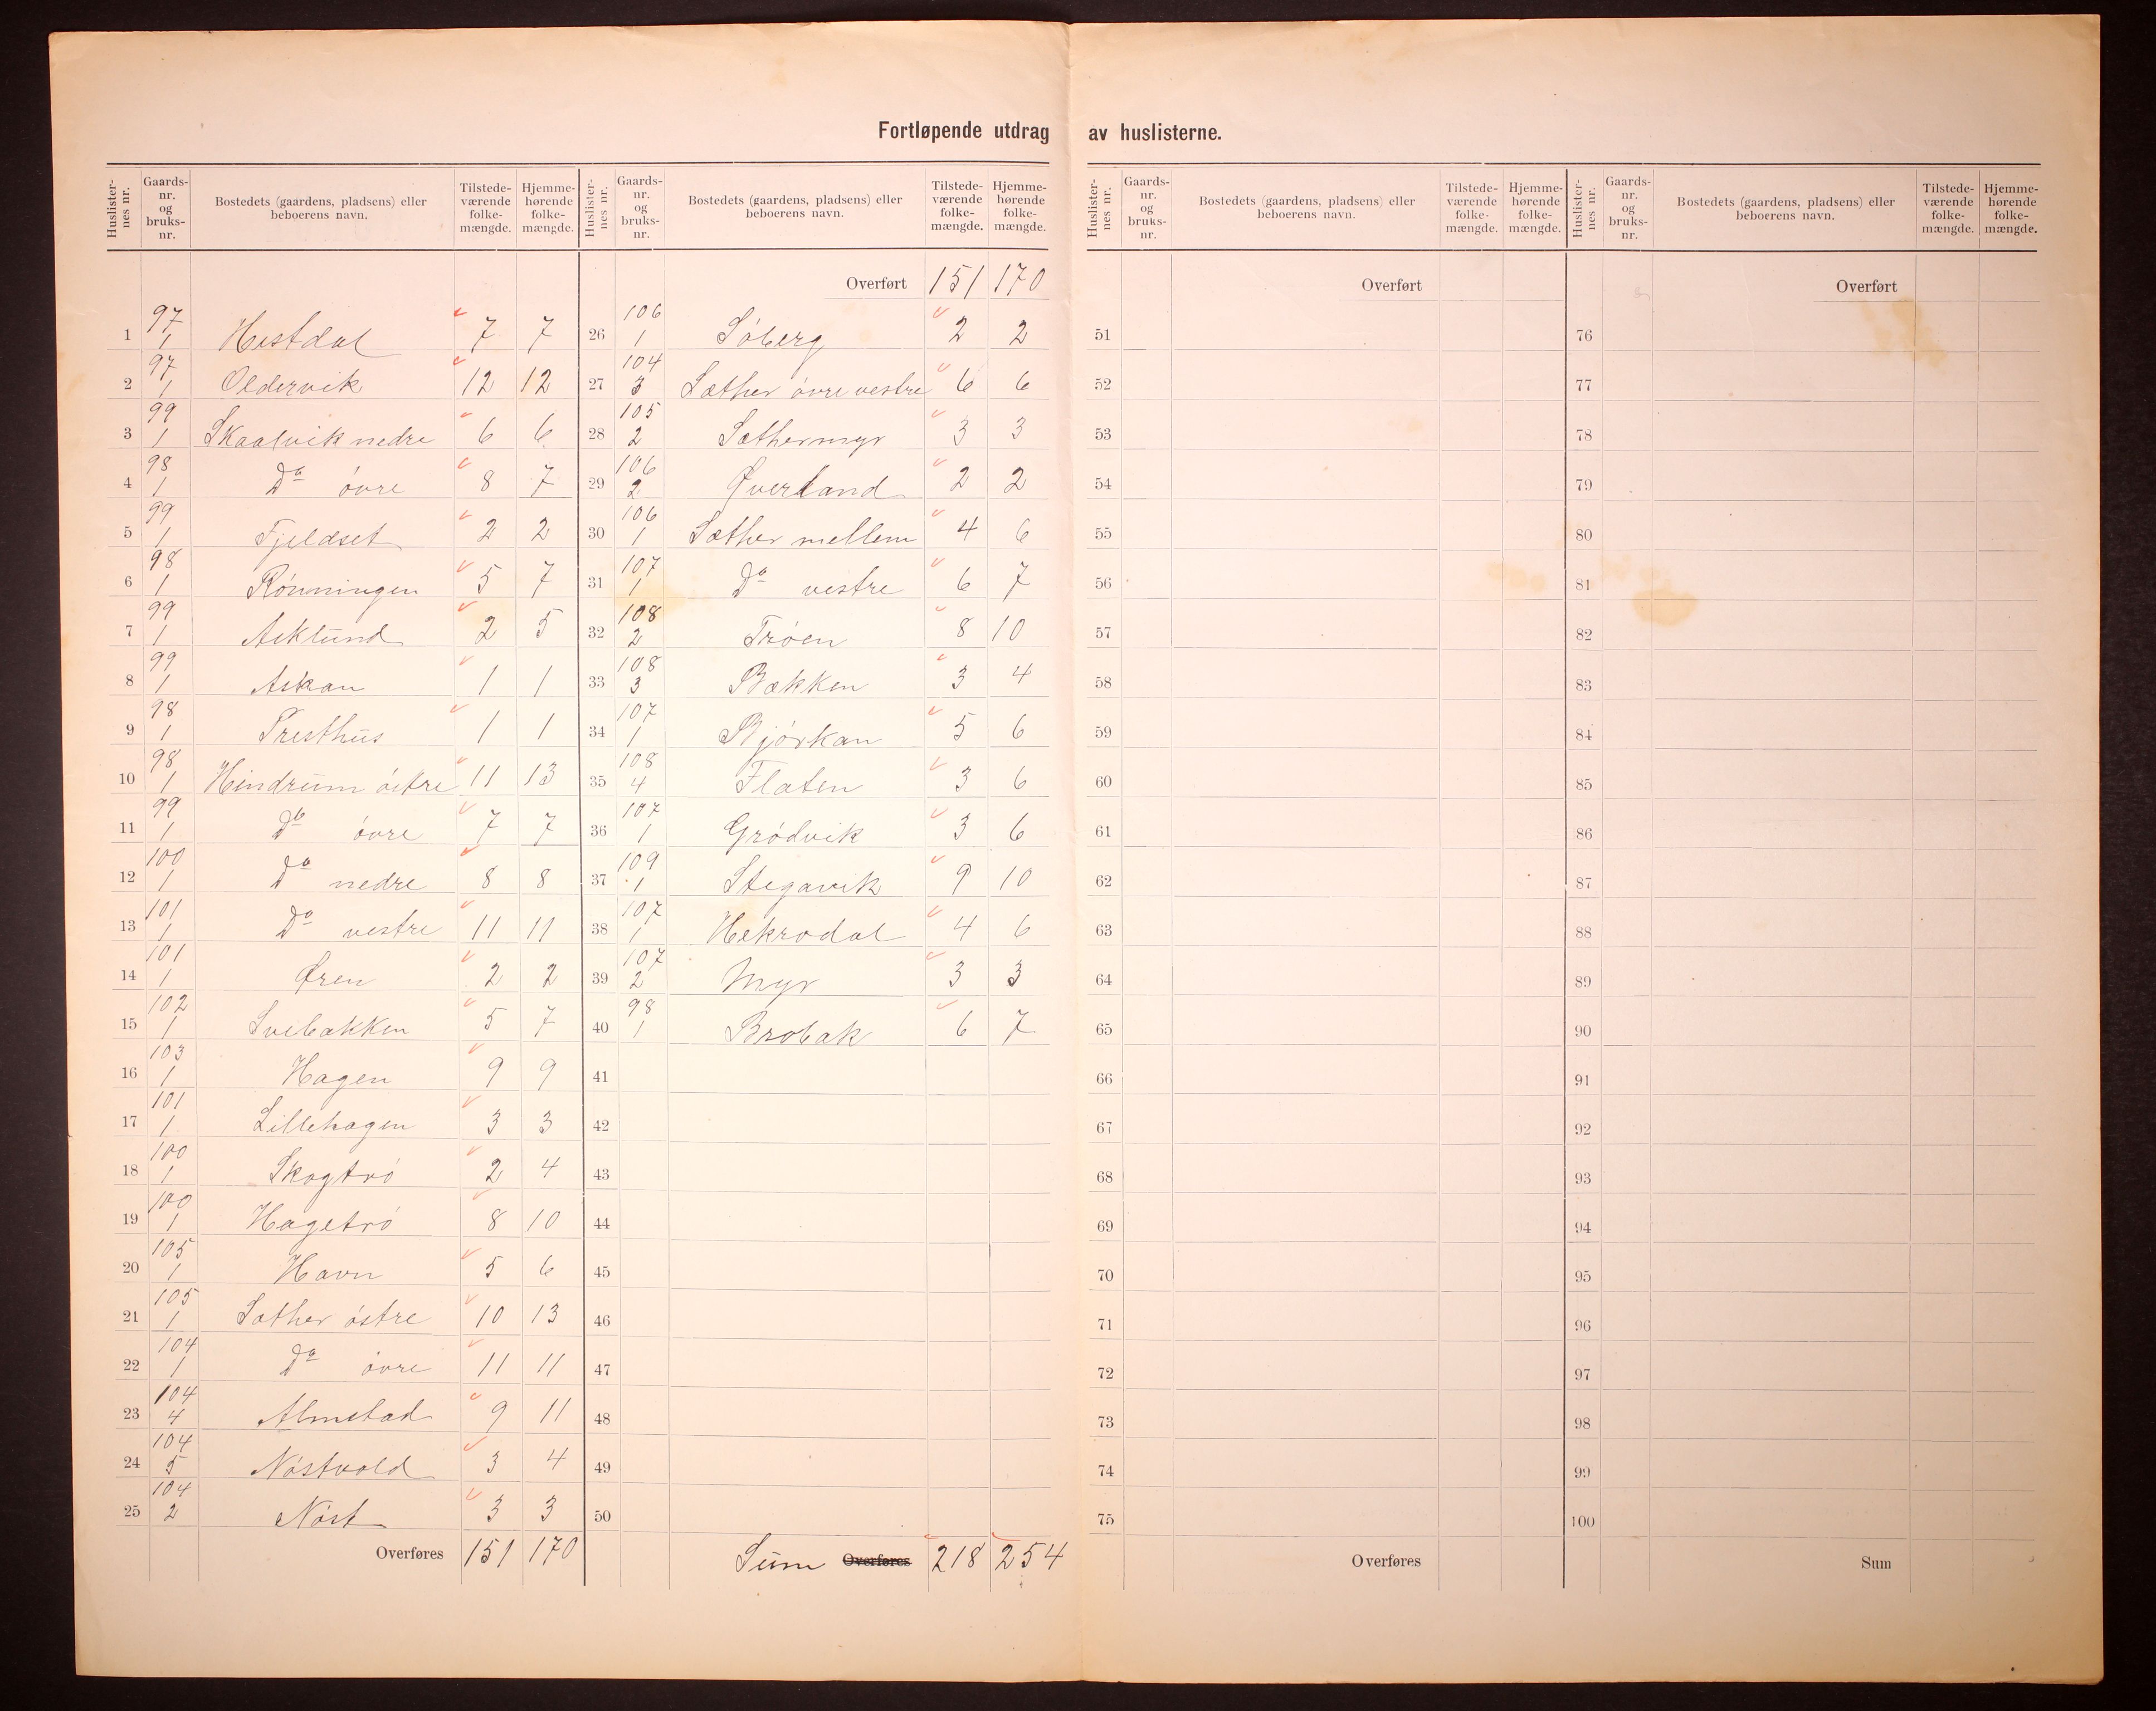 Fortløpende utdrag av huslisterne.
Huslisternes nr. Gaards-nr. og bruks-nr. Bostedets (gaardens, pladsens) eller beboerens navn. Tilstede-værende folke-mængde. Hjemme-hørende folke-mængde.
1 97/1 Hestdal 7 7
2 97/1 Oldervik 12 12
3 99/1 Skaalvik nedre 6 6
4 98/1 Do øvre 8 7
5 99/1 Fjeldset 2 2
6 98/1 Rønningen 5 7
7 99/1 Asklund 2 5
8 99/1 Askan 1 1
9 98/1 Presthus 1 1
10 98/1 Hindrum østre 11 13
11 99/1 Do øvre 7 7
12 100/1 Do nedre 8 8
13 101/1 Do vestre 11 11
14 101/1 Øren 2 2
15 102/1 Svebakken 5 7
16 103/1 Hagen 9 9
17 101/1 Lillehagen 3 3
18 100/1 Skogtrø 2 4
19 100/1 Hagetrø 8 10
20 105/1 Havn 5 6
21 105/1 Sæther østre 10 13
22 104/1 Do øvre 11 11
23 104/4 Almstad 9 11
24 104/5 Nøstvold 3 4
25 104/2 Nøst 3 3
Overføres 151 170
Huslisternes nr. Gaards-nr. og bruks-nr. Bostedets (gaardens, pladsens) eller beboerens navn. Tilstede-værende folke-mængde. Hjemme-hørende folke-mængde.
Overført 151 170
26 106/1 Søberg 2 2
27 104/3 Sæther øvre vestre 6 6
28 105/2 Sæthermyr 3 3
29 106/2 Øverland 2 2
30 106/1 Sæther mellem 4 6
31 107/1 Do vestre 6 7
32 108/2 Trøen 8 10
33 108/3 Bækken 3 4
34 107/1 Bjørkan 5 6
35 108/4 Flaten 3 6
36 107/1 Grødvik 3 6
37 109/1 Stegavik 9 10
38 107/1 Hekrodal 4 6
39 107/2 Myr 3 3
40 98/1 Brobak 6 7
41
42
43
44
45
46
47
48
49
50
Sum Overføres 218 254
Huslisternes nr. Gaards-nr. og bruks-nr. Bostedets (gaardens, pladsens) eller beboerens navn. Tilstede-værende folke-mængde. Hjemme-hørende folke-mængde.
Overført
51
52
53
54
55
56
57
58
59
60
61
62
63
64
65
66
67
68
69
70
71
72
73
74
75
Overføres
Huslisternes nr. Gaards-nr. og bruks-nr. Bostedets (gaardens, pladsens) eller beboerens navn. Tilstede-værende folke-mængde. Hjemme-hørende folke-mængde.
Overført
76
77
78
79
80
81
82
83
84
85
86
87
88
89
90
91
92
93
94
95
96
97
98
99
100
Sum